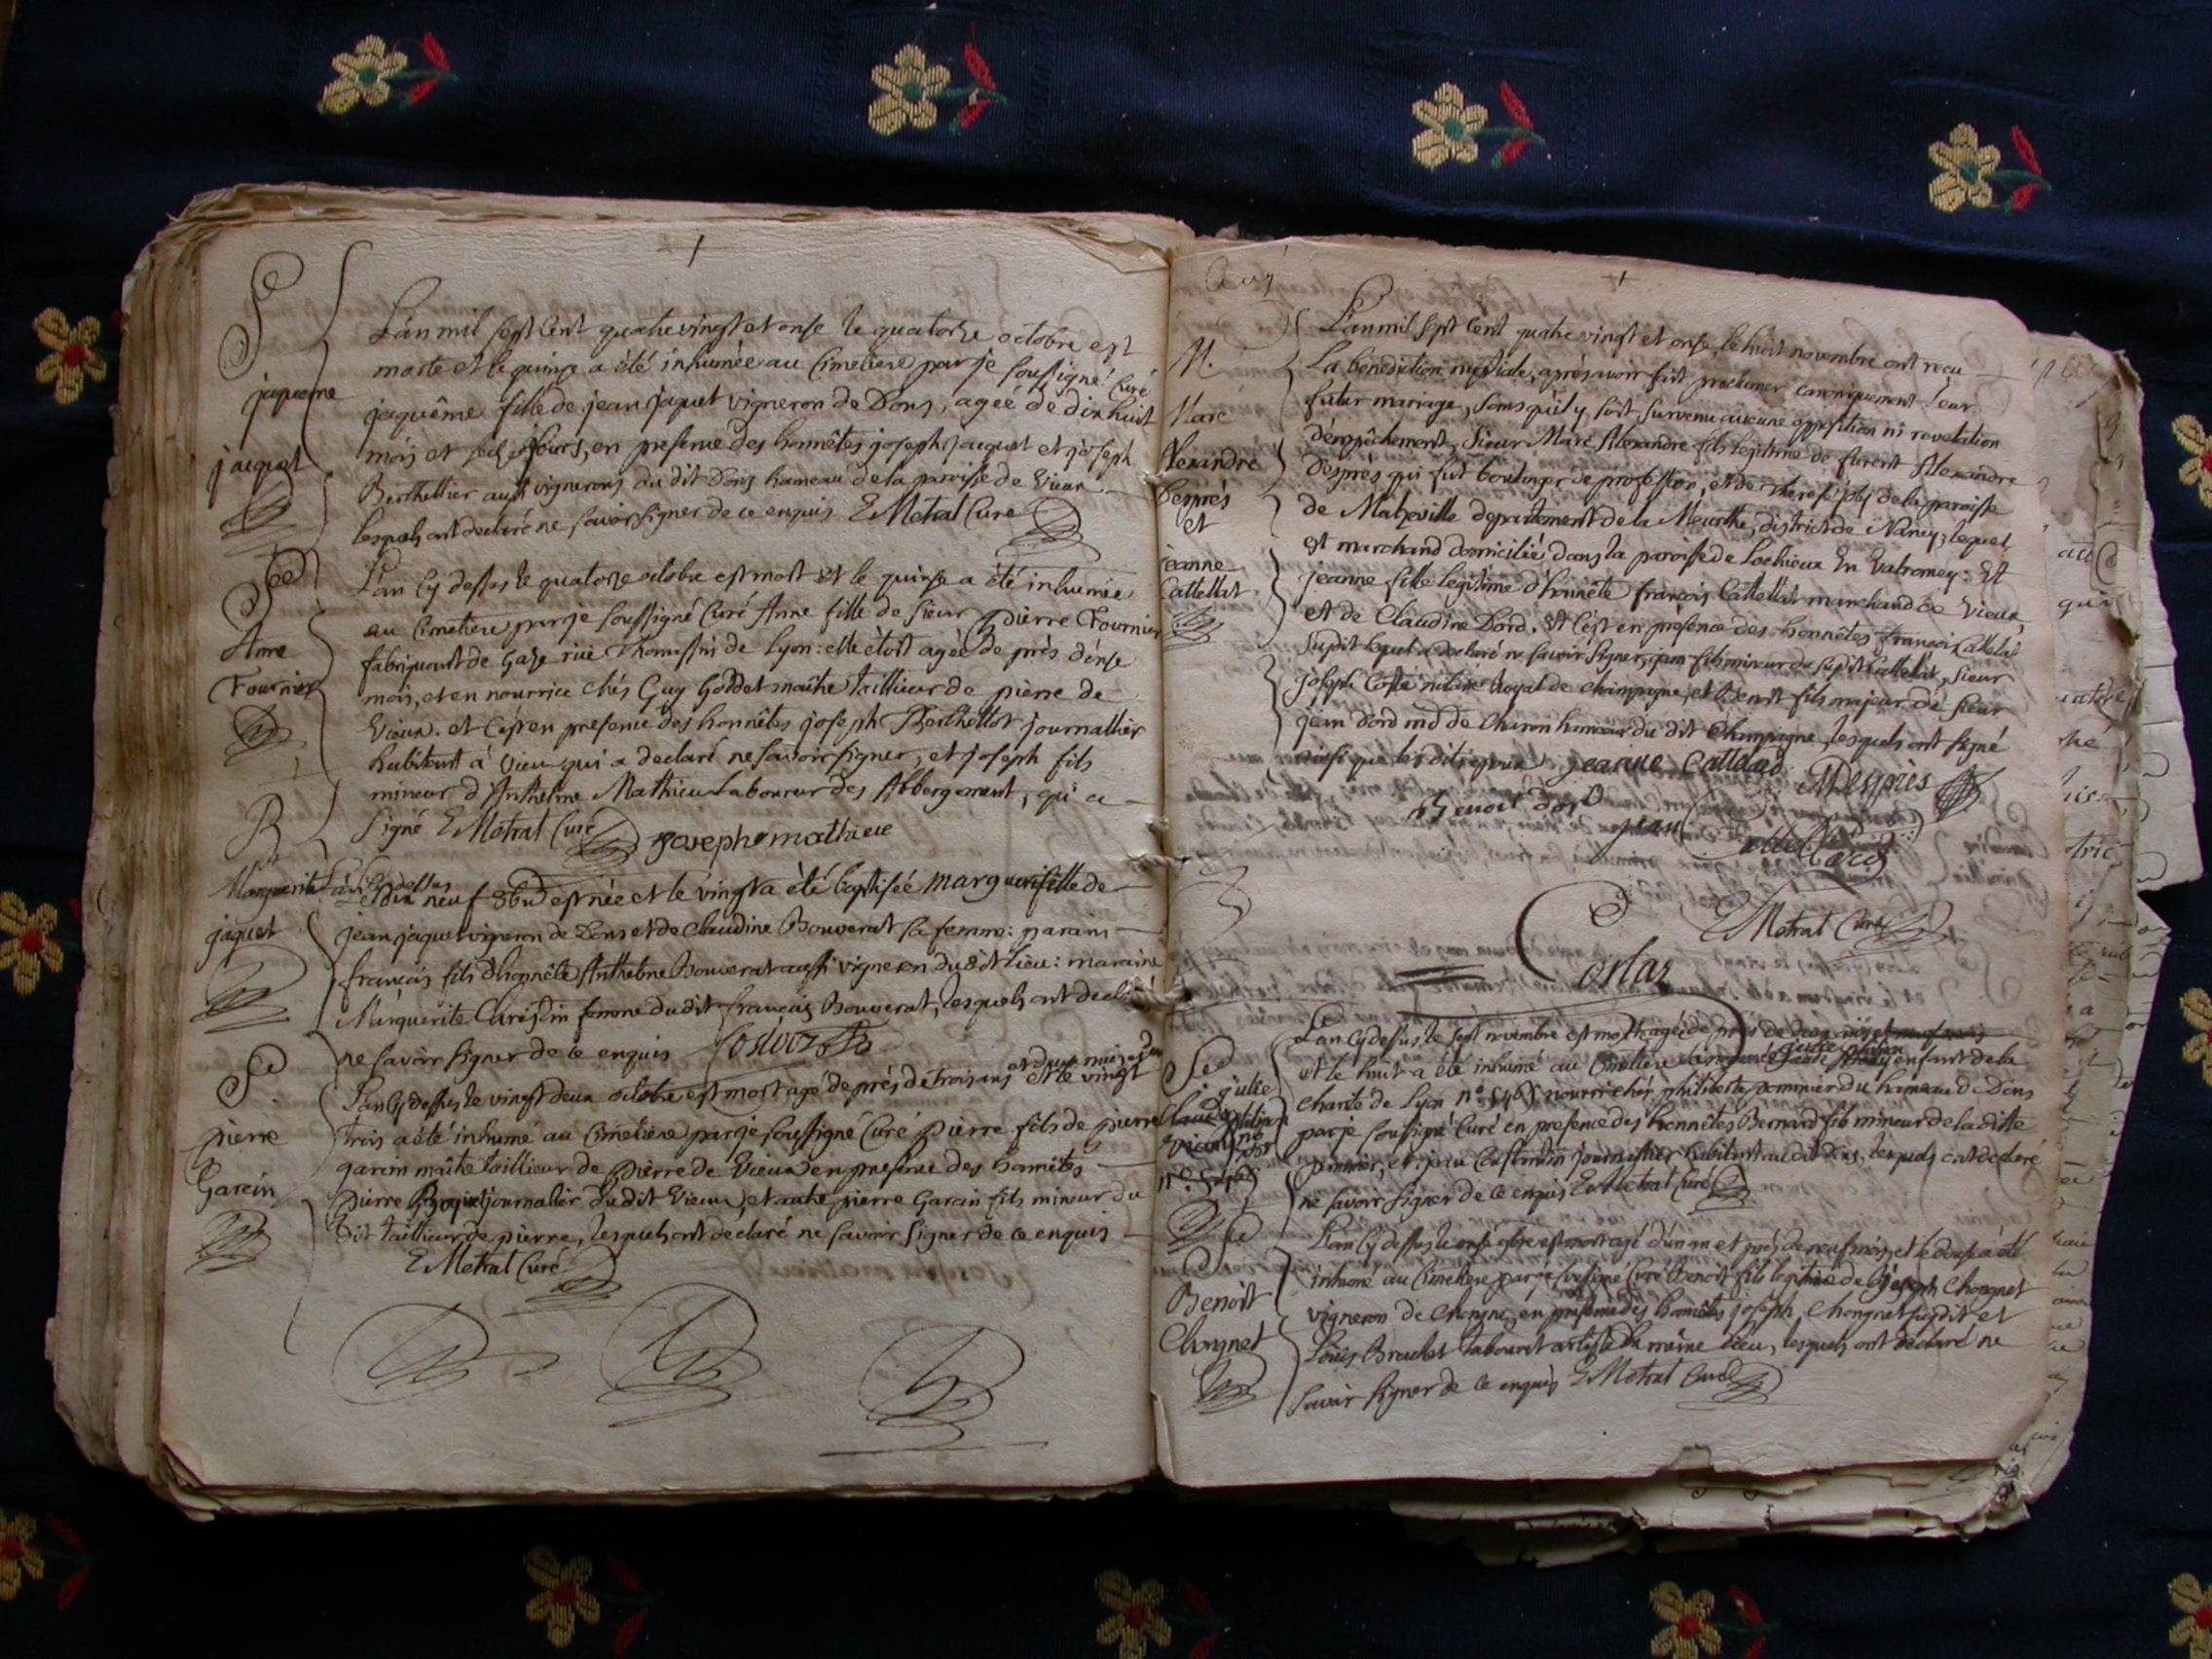 Se
jaqueme
jaquet
L'an mil sept cent quatre vingt et onse le quatorse octobre est
morte et le quinse a été inhumée au cimetiere par je soussigné curé
jaquême fille de jean jaquet vigneron de Dons, agée de dix huit
mois et jours, en presence des honnêtes joseph jacquet et joseph
Berthellier aussi vignerons du dit Dons hameau de la paroisse de Vieux
lesquels ont declaré ne savoir signer de ce enquis EMetral Curé
Se
Anne
Fournier
L'an cy dessus le quatorse octobre est mort et le quinse a été inhumée
au cimetiere par je soussigné Curé Anne fille de sieur pierre Fournier
fabriquant de gaze rüe Thomassin de Lyon: elle étoit agée de près d'onse
mois, et en nourrice chés Guy Goddet maître taillieur de pierre de
Vieux. et c'est en presence des honnêtes joseph Berthellot journallier
habitant à Vieu qui a declaré ne savoir signer, et joseph fils
mineur d'Anthelme Mathieu laboureur des Abbergement, qui a
signé EMetral Curé josephe mathieu
B
Marguerite
jaquet
L'an cy dessus
le dix neuf 8bre est née et le vingt a été baptisée marguerite fille de
jean jaquet vigneron de Dons et de Claudine Bouverat sa femme: parain
françois fils d'honnête Anthelme Bouverat aussi vigneron du dit lieu: maraine
Marguerite Christin femme du dit françois Bouverat, lesquels ont declaré
ne savoir signer de ce enquis
Se
pierre
Garcin
et deux mois
L'an cy dessus le vingt deux octobre est mort agé de près de trois ans et le vingt
trois a été inhumé au cimetiere par je soussigné Curé pierre fils de pierre
garcin maître taillieur de pierre de Vieux en presence des honnêtes
pierre journalier du dit Vieux, et autre pierre Garcin fils mineur du
dit taillieur de pierre, lesquels ont déclaré ne savoir signer de ce enquis
EMetral Curé
M.
Marc
Alexandre
Després
et
jeanne
Cattellat
L'an mil sept cent quatre vingt et onse, le huit novembre ont reçu
La benediction nuptiale, après avoir fait proclamer canoniquement leur
futur mariage, sans qu'il y soit survenu aucune opposition ni revelation
d'empêchement, sieur Marc Alexandre fils legitime de furent Alexandre
Després qui fut boulanger de profession, et de Therese joly de la paroisse
de Malzeville departement de la Meurthe, district de Nancy, lequel
est marchand domicilié dans la paroisse de Lochieux en Valromey: Et
jeanne fille legitime d'honnête françois Cattellat marchand de Vieux,
et de Claudine Dord. et c'est en présence des honnêtes françois Cattelat
susdit lequel a declaré ne savoir signer, jean fils mineur du susdit Cattellat, sieur
joseph Coste notaire Royal de Champagne, et Benoit fils majeur de sieur
jean Dord md de Charon hameau du dit Champagne, lesquels ont signé
ainsi que les dits epoux jeanne Cattelad MDesprés
Benoit dord
jean
EMetral Curé
Costaz
Se
julie
Claude
no
L'an cy dessus le sept novembre est mort agé de près de deux
et le huit a été inhumé au Cimetiere enfant de la
charité de Lyon no nourri chés philiberte pommier du hameau de Dons
par je soussigné Curé en presence des honnêtes Bernard fils mineur de la ditte
pommier, et jean Constantin journallier habitant au dit Dons, lesquels ont declaré
ne savoir signer de ce enquis EMetral Curé
Se
Benoit
Chongnet
L'an cy dessus le onse 9bre est mort agé d'un an et près de neuf mois, et le douse a été
inhumé au Cimetiere par je soussigné Curé Benoit fils legitime de joseph Chongnet
vigneron de Chongne, en presence des honnêtes joseph Chongnet susdit et
Loüis du même lieu, lesquels ont declaré ne
savoir signer de ce enquis EMetral Curé